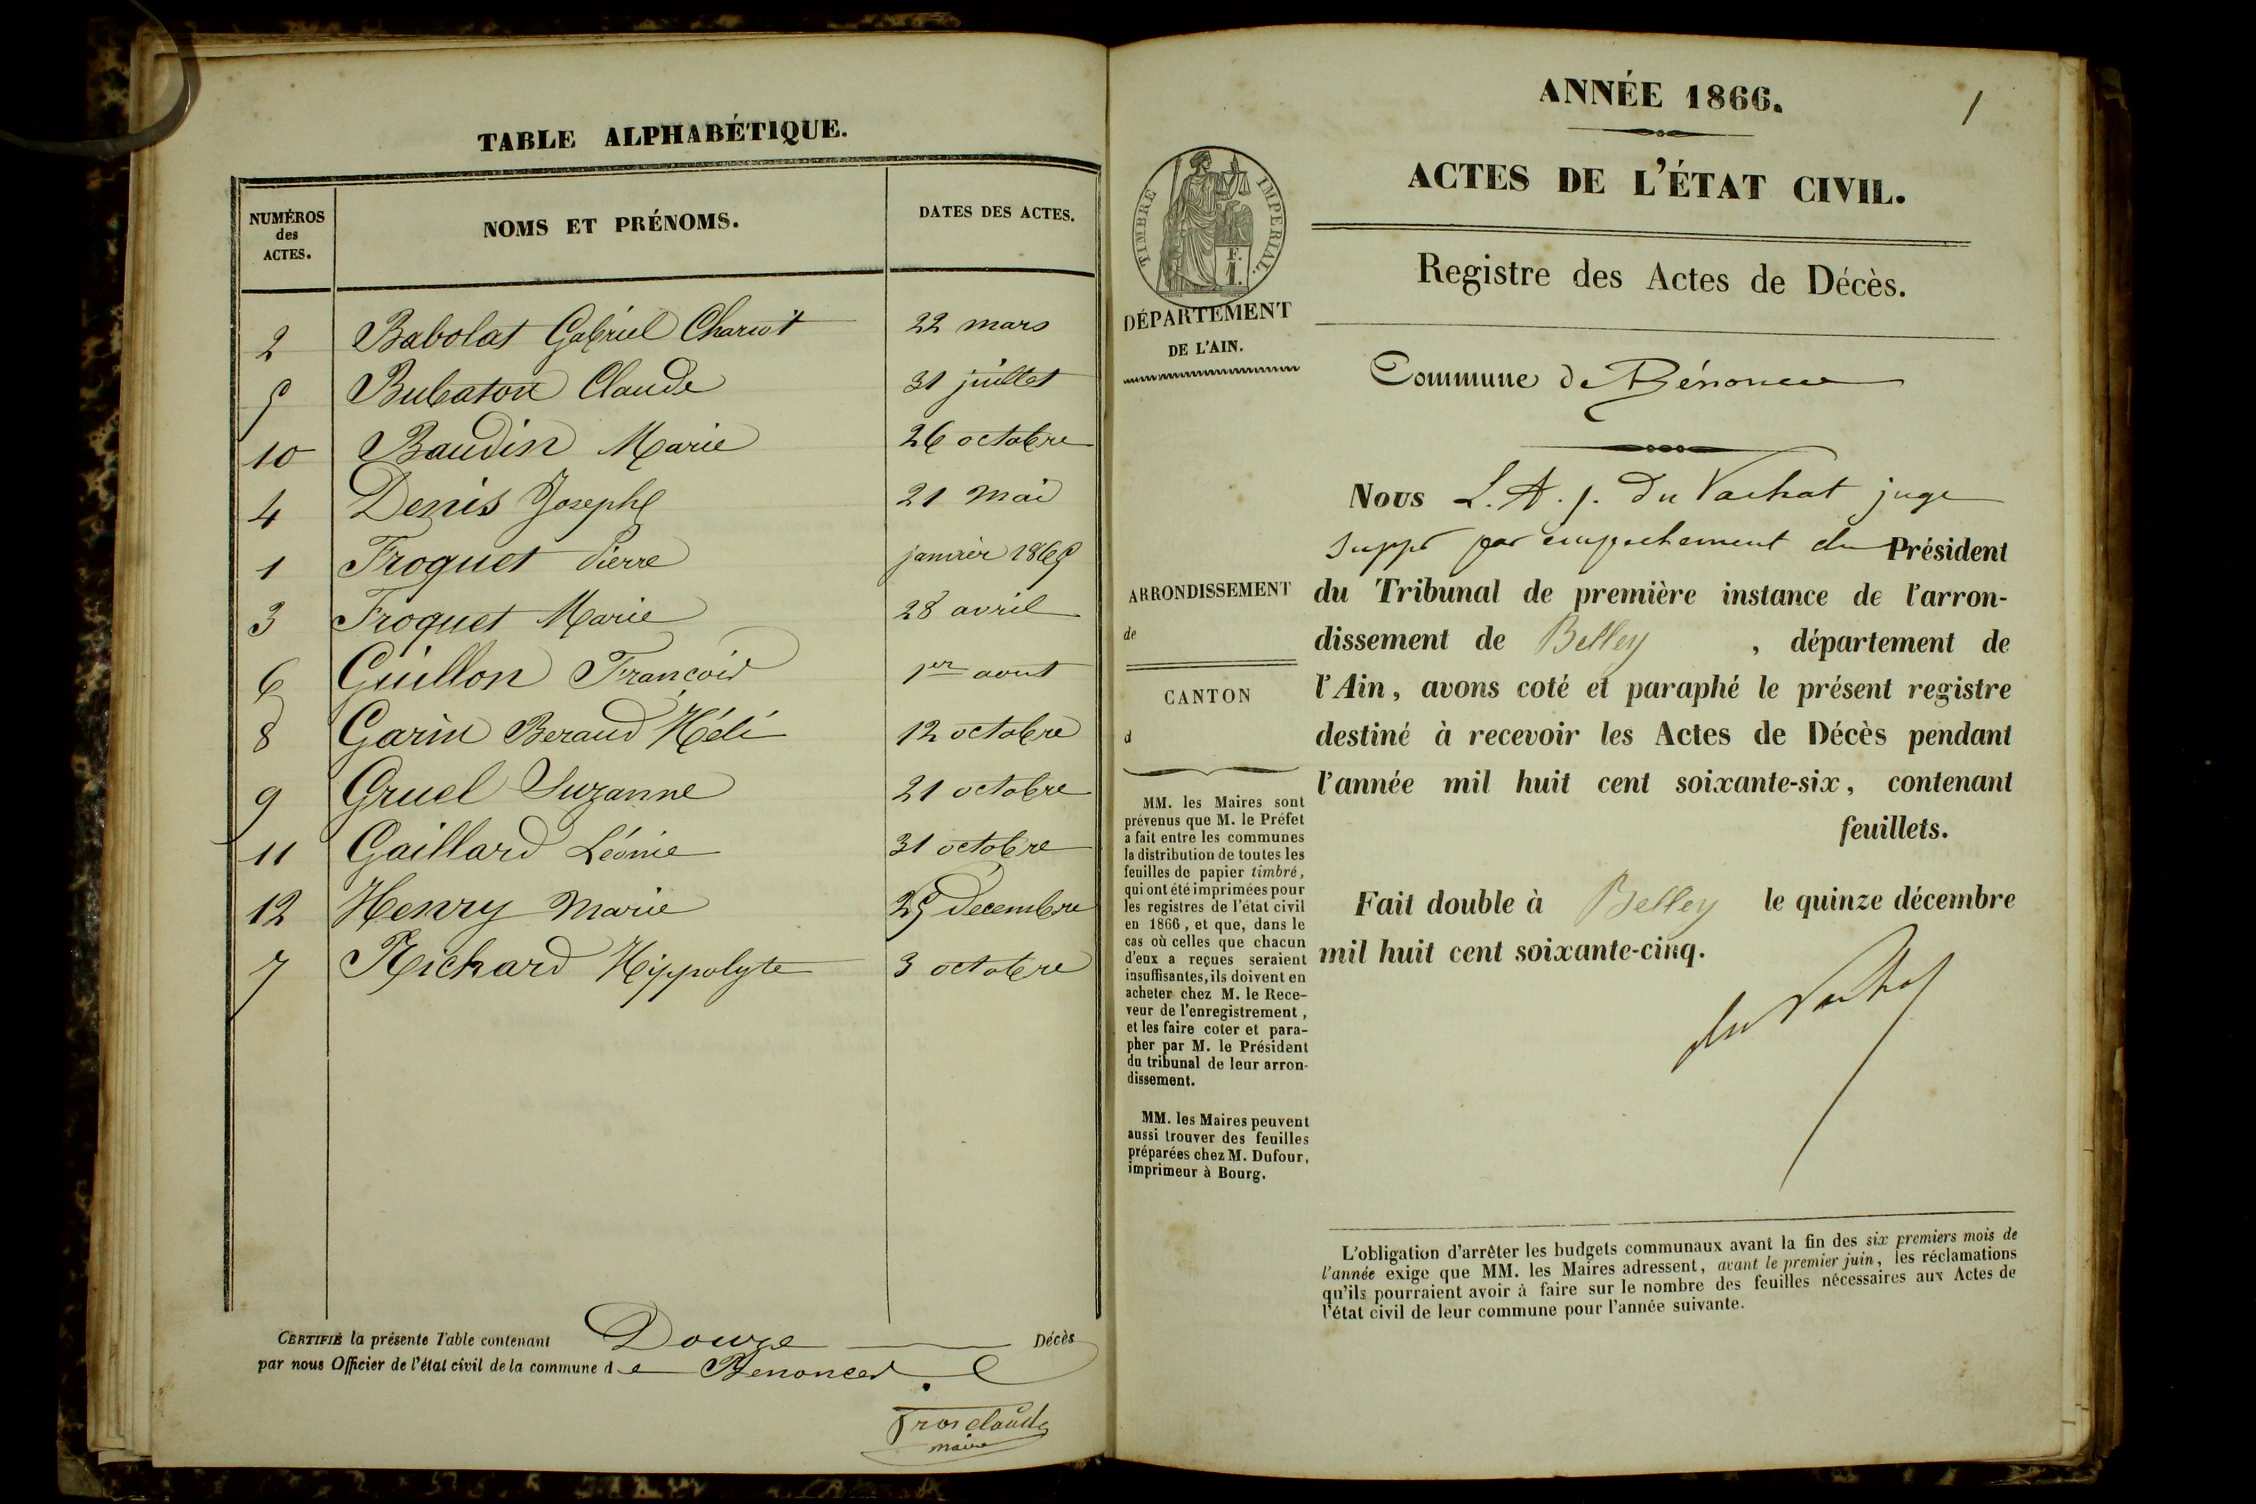 TABLE ALPHABÉTIQUE.
NUMÉROS des ACTES. NOMS ET PRÉNOMS. DATES DES ACTES.
2 Babolat Gabriel 22 mars
5 Bubaton Claude 31 juillet
10 Baudin Marie 26 octobre
4 Denis Joseph 21 mai
1 Froquet Pierre janvier 1865
3 Froquet Marie 28 avril
6 Guillon François 1er aout
8 Garin Beraud Héli 12 octobre
9 Gruel Suzanne 21 octobre
11 Gaillard Léonie 31 octobre
12 Henry Marie 25 décembre
7 Richard Hippolyte 3 octobre
CERTIFIÉ la présente Table contenant Douze Décès
par nous Officier de l'état civil de la commune de Benonces
Trosclaude
maire
1
ANNÉE 1866.
ACTES DE L'ÉTAT CIVIL.
Registre des Actes de Décès.
Commune de Bénonces
Nous L. A. J. Du Vachat juge
suppt par empechement du Président
du Tribunal de première instance de l'arron-
dissement de Belley , département de
l'Ain, avons coté et paraphé le présent registre
destiné à recevoir les Actes de Décès pendant
l'année mil huit cent soixante-six, contenant
feuillets.
Fait double à Belley le quinze décembre
mil huit cent soixante-cinq.
du Vachat
TIMBRE IMPERIAL.
F.
1.
DÉPARTEMENT
DE L'AIN.
ARRONDISSEMENT
de
CANTON
d
MM. les Maires sont
prévenus que M. le Préfet
a fait entre les communes
la distribution de toutes les
feuilles de papier timbré,
qui ont été imprimées pour
les registres de l'état civil
en 1866, et que, dans le
cas où celles que chacun
d'eux a reçues seraient
insuffisantes, ils doivent en
acheter chez M. le Rece-
veur de l'enregistrement,
et les faire coter et para-
pher par M. le Président
du tribunal de leur arron-
dissement.
MM. les Maires peuvent
aussi trouver des feuilles
préparées chez M. Dufour,
imprimeur à Bourg.
L'obligation d'arrêter les budgets communaux avant la fin des six premiers mois de
l'année exige que MM. les Maires adressent, avant le premier juin, les réclamations
qu'ils pourraient avoir à faire sur le nombre des feuilles nécessaires aux Actes de
l'état civil de leur commune pour l'année suivante.